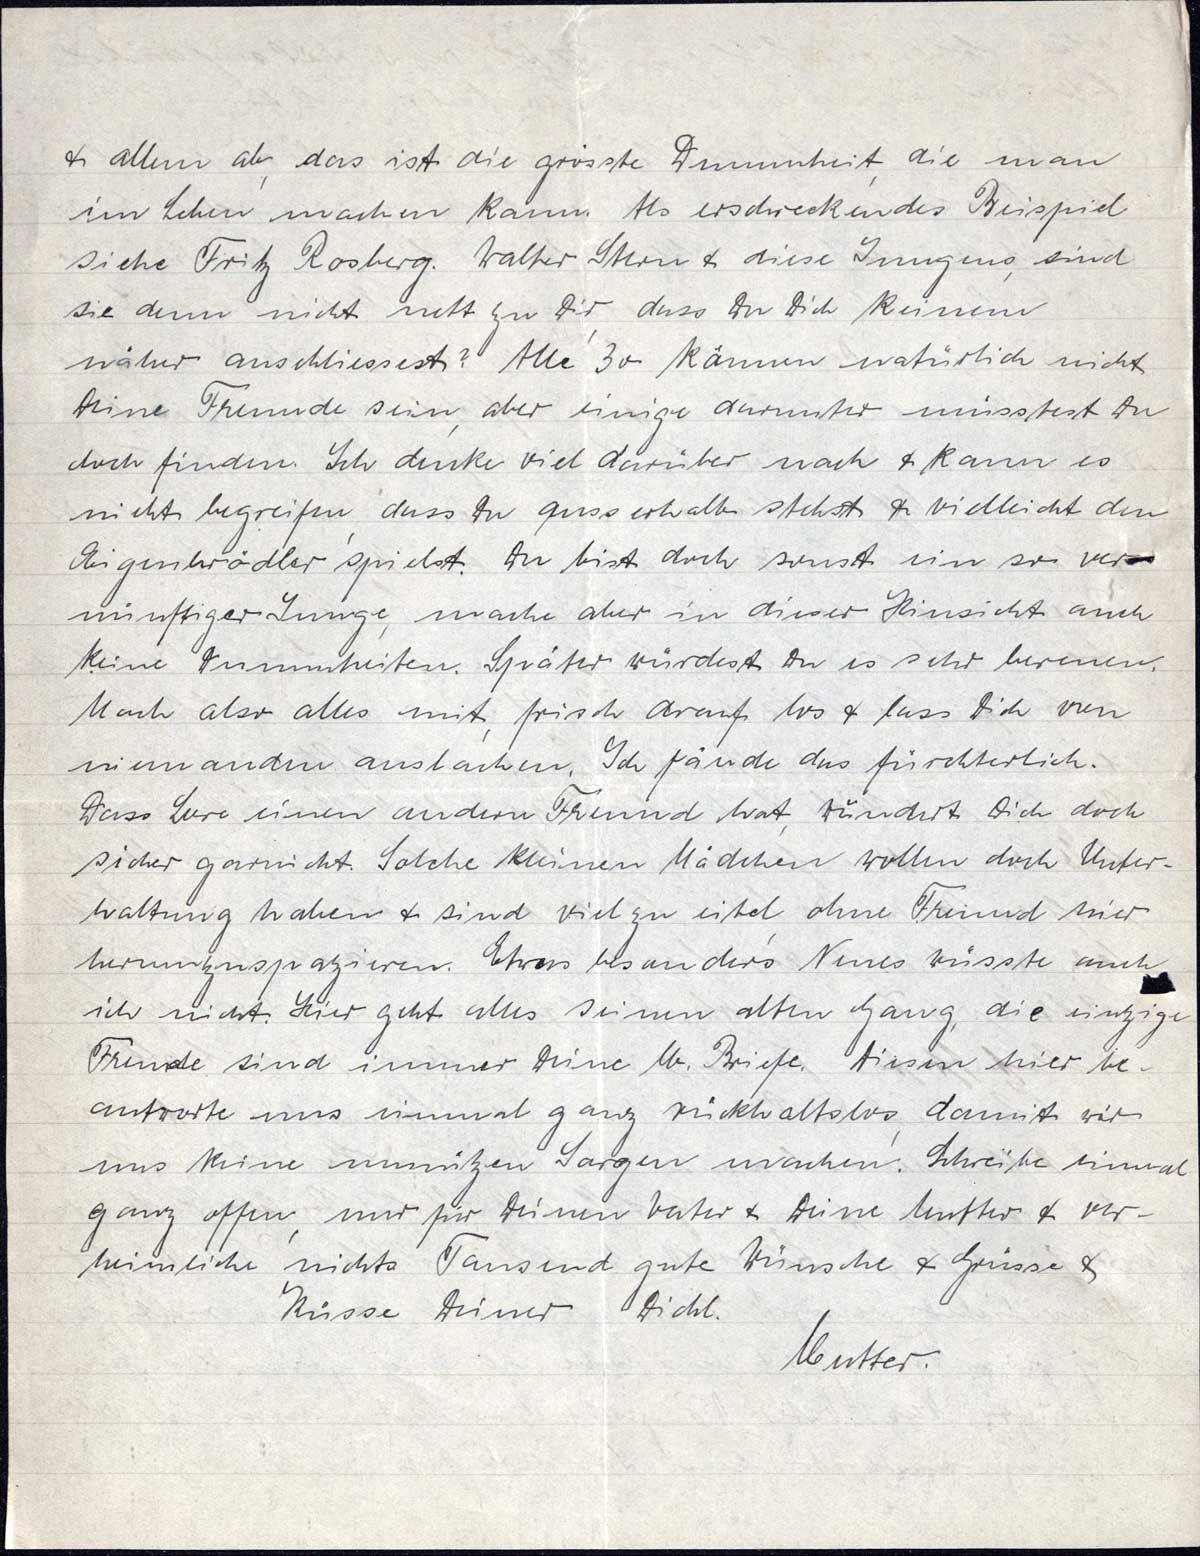 & allem ab, das ist die grösste Dummheit, die man
im Leben machen kann. Als erschreckendes Beispiel
siehe Fritz Rosberg. Walter Stern & diese Jungens, sind
sie denn nicht nett zu Dir, dass Du Dich keinem
näher anschliessest? Alle 30 können natürlich nicht
Deine Freunde sein, aber einige darunter müsstest Du
doch finden. Ich denke viel darüber nach & kann es
nicht begreifen, dass Du ausserhalb stehst & vielleicht den
Eigenbrödler spielst. Du bist doch sonst ein so ver-
nünftiger Junge, mache aber in dieser Hinsicht auch
keine Dummheiten. Später würdest Du es sehr bereuen.
Mach also alles mit, frisch drauf los & lass Dich von
niemanden auslachen. Ich fände das fürchterlich.
Dass Lore einen andern Freund hat, wundert Dich doch
sicher garnicht. Solche kleinen Mädchen wollen doch Unter-
haltung haben & sind viel zu eitel, ohne Freund hier
herumzuspazieren. Etwas besonders Neues wüsste auch
ich nicht. Hier geht alles seinen alten Gang, die einzige
Freude sind immer Deine lb. Briefe. Diesen hier be-
antworte uns einmal ganz rückhaltslos, damit wir
uns keine unnützen Sorgen machen. Schreibe einmal
ganz offen, nur für Deinen Vater & Deine Mutter & ver-
heimliche nichts Tausend gute Wünsche & Grüsse &
Küsse Deiner Dichl.
Mutter.